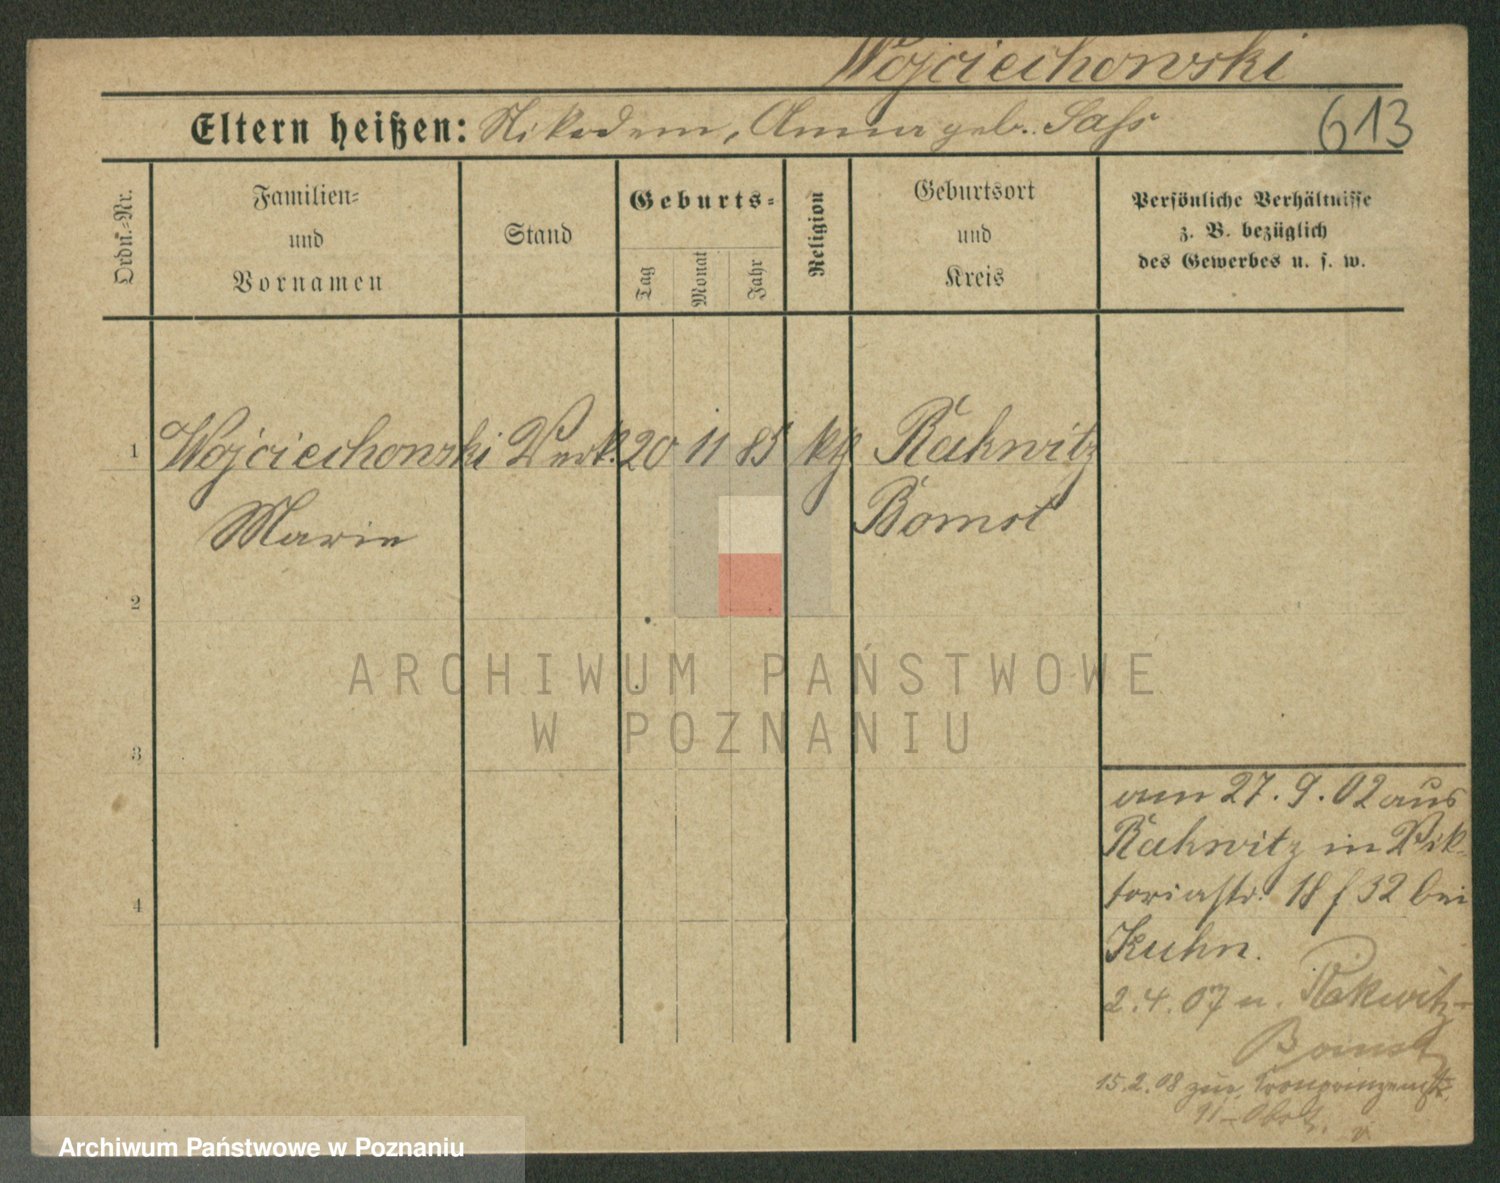 Wojciechowski
Eltern heißen: Nikodem, Anna geb. Sass
613
Ordn.-Nr.
Familien-
und
Vornamen
Stand
Geburts-
Tag
Monat
Jahr
Religion
Geburtsort
und
Kreis
Persönliche Verhältnisse
z. B. bezüglich
des Gewerbes u. s. w.
1 Wojciechowski Verk. 20 11 85 kth Rakwitz
Marie Bomst
2
3
4
am 27. 9. 02 aus
Rakwitz in Vik-
toriastr. 18 f 32 bei
Kuhn.
2. 4. 07 n. Rakwitz-
Bomst
15. 2. 08 zur. Kronprinzenstr.
91
ARCHIWUM PAŃSTWOWE
W POZNANIU
Archiwum Państwowe w Poznaniu